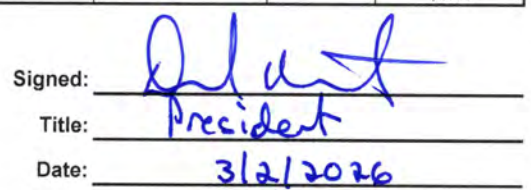 Signed:
Title: President
Date: 3/2/2026